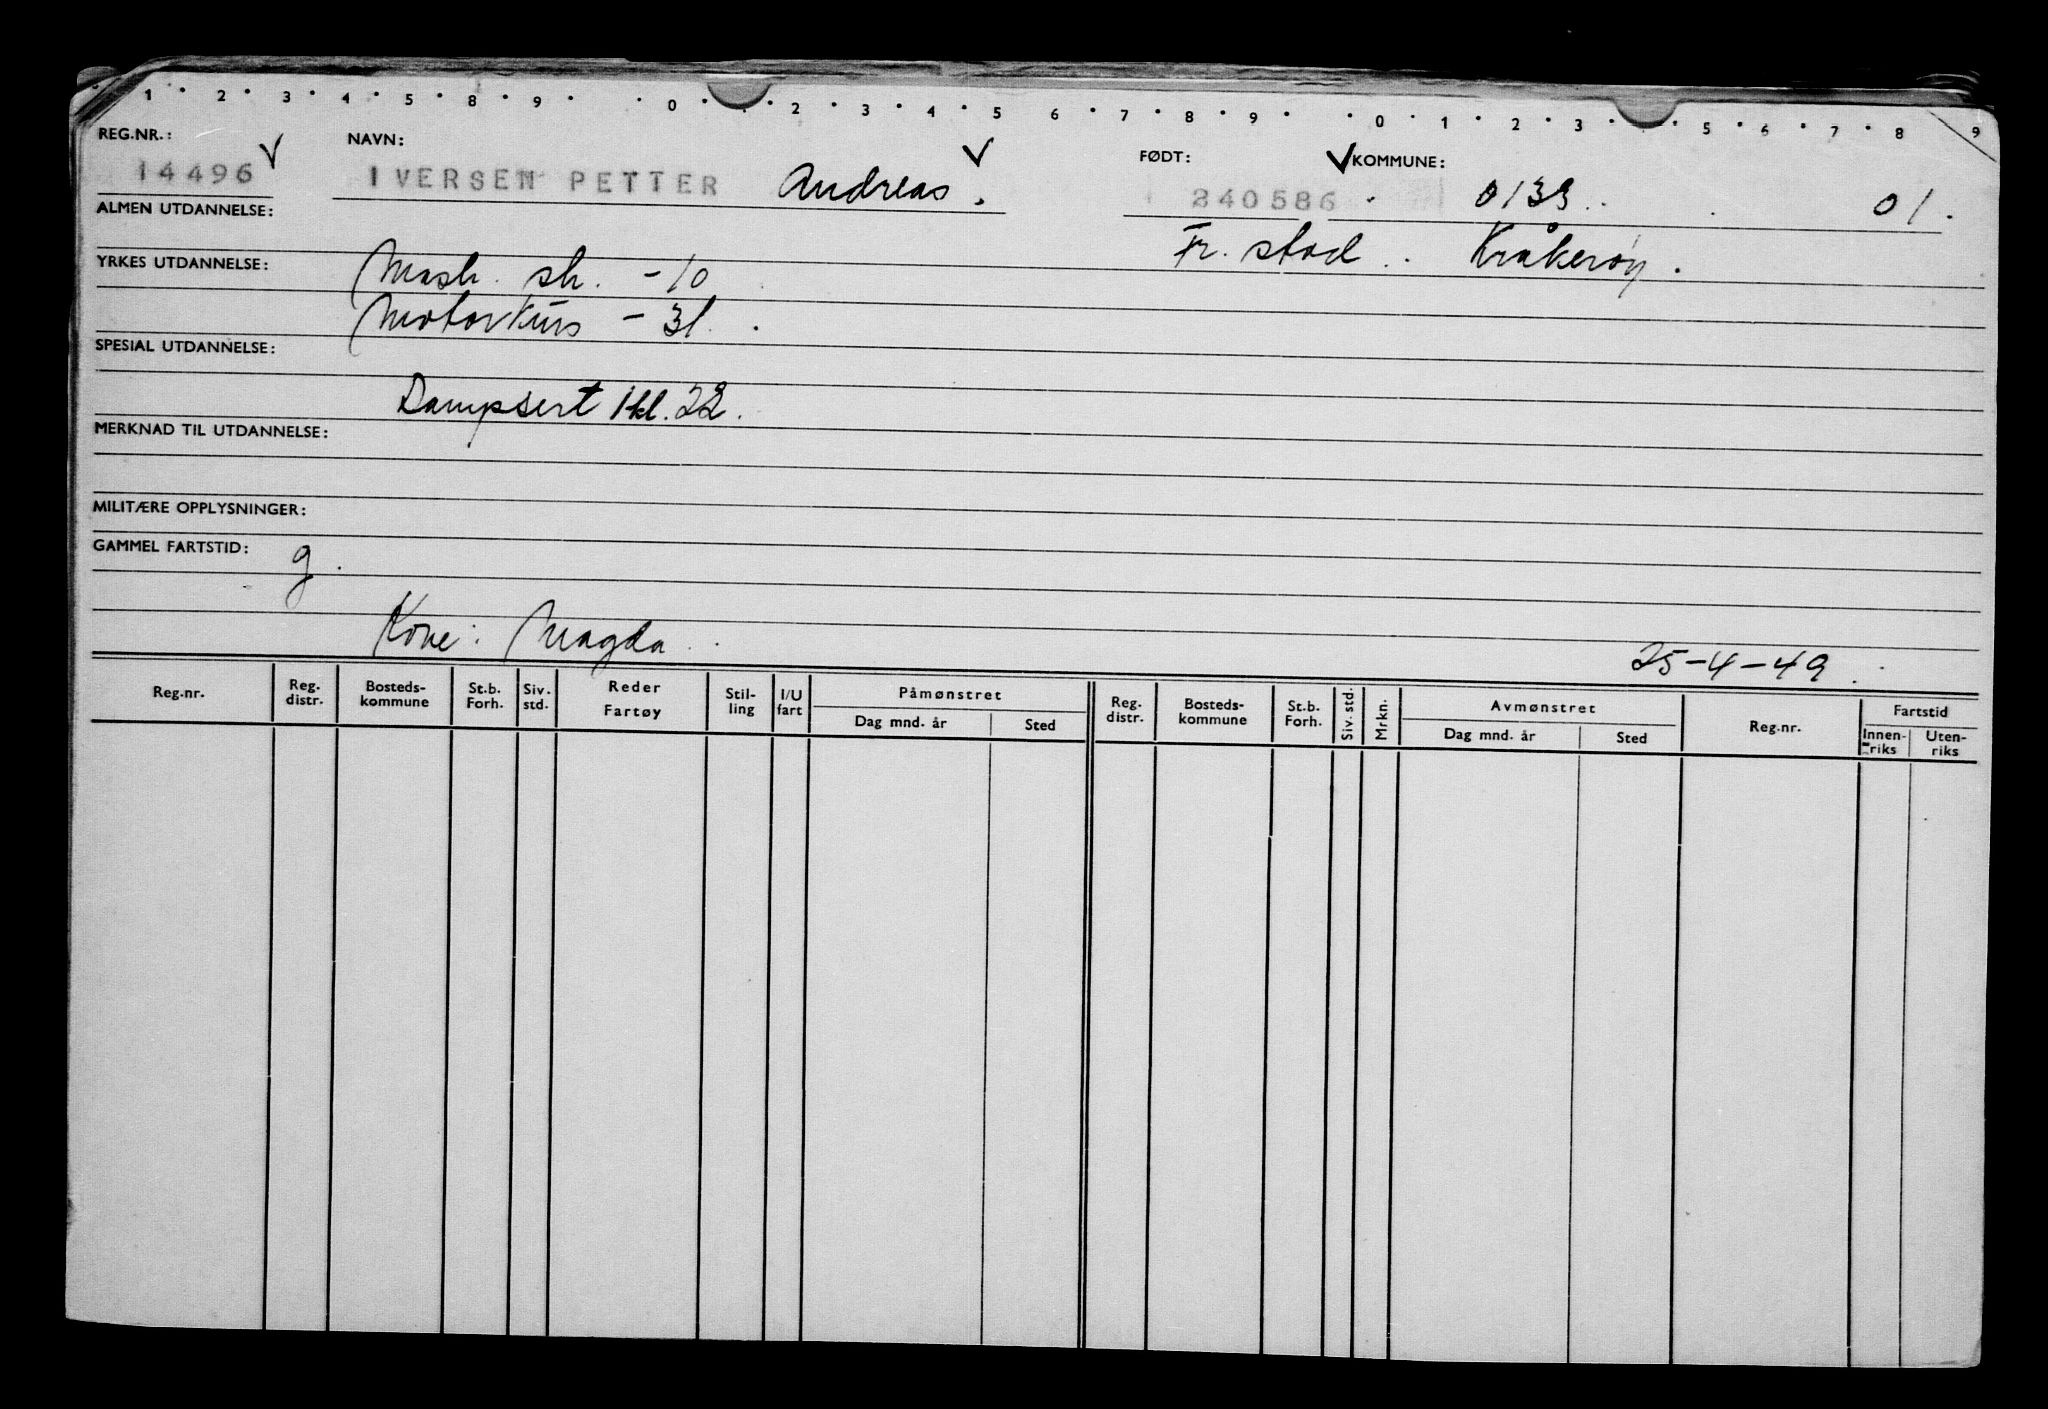 1 · 2 · 3 · 4 · 5 · 8 · 9 · · 0 · · 2 · 3 · 4 · 5 6 · 7 · 8 · 9 · · 0 · 1 · 2 · 3 · · 5 · 6 · 7 · 8 9
REG.NR.: NAVN: FØDT: KOMMUNE:
14496 IVERSEN PETTER Andreas. 240586 0133 01.
ALMEN UTDANNELSE:
Fr. stad Kråkerøy.
YRKES UTDANNELSE: Mask. sk. -10
Motorkurs - 31.
SPESIAL UTDANNELSE:
Dampsert 1 kl. 22.
MERKNAD TIL UTDANNELSE:
MILITÆRE OPPLYSNINGER:
GAMMEL FARTSTID: g.
Kone: Magda
25-4-49
Reg.nr. Reg. distr. Bosteds-kommune St.b. Forh. Siv. std. Reder Fartøy Stil-ling I/U fart Påmønstret Reg. distr. Bosteds-kommune St.b. Forh. Siv. std. Mrkn. Avmønstret Reg.nr. Fartstid
Dag mnd. år Sted Dag mnd. år Sted Innen-riks Uten-riks